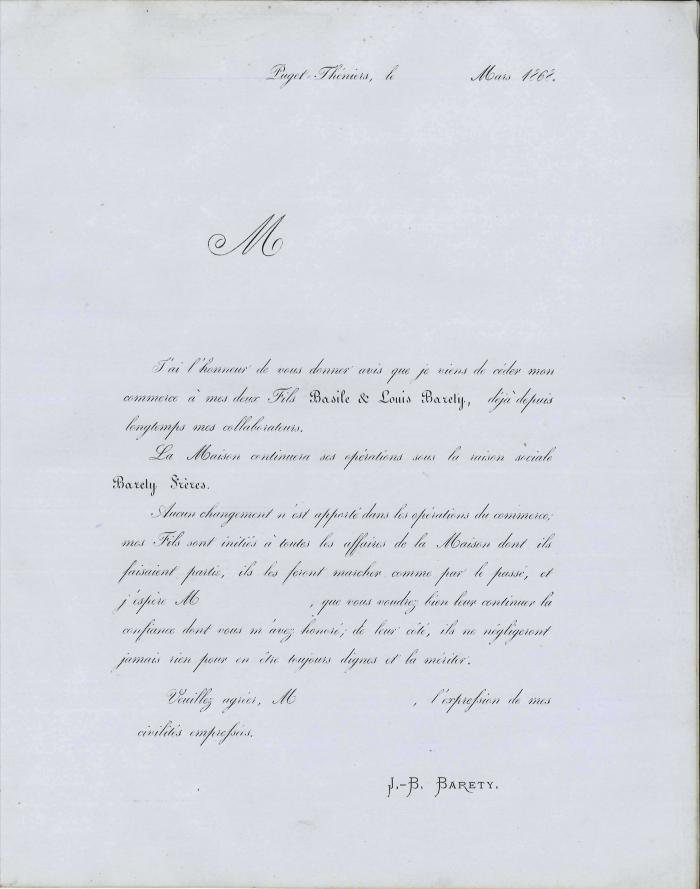 Puget-Théniers, le Mars 1868.
M
J'ai l'honneur de vous donner avis que je viens de céder mon
commerce à mes deux Fils Basile & Louis Barety, déjà depuis
longtemps mes collaborateurs.
La Maison continuera ses opérations sous la raison sociale
Barety Frères.
Aucun changement n'est apporté dans les opérations du commerce;
mes Fils sont initiés à toutes les affaires de la Maison dont ils
faisaient partie, ils les feront marcher comme par le passé, et
j'espère M , que vous voudrez bien leur continuer la
confiance dont vous m'avez honoré; de leur côté, ils ne négligeront
jamais rien pour en être toujours dignes et la mériter.
Veuillez agréer, M , l'expression de mes
civilités empressées.
J.-B. BARETY.